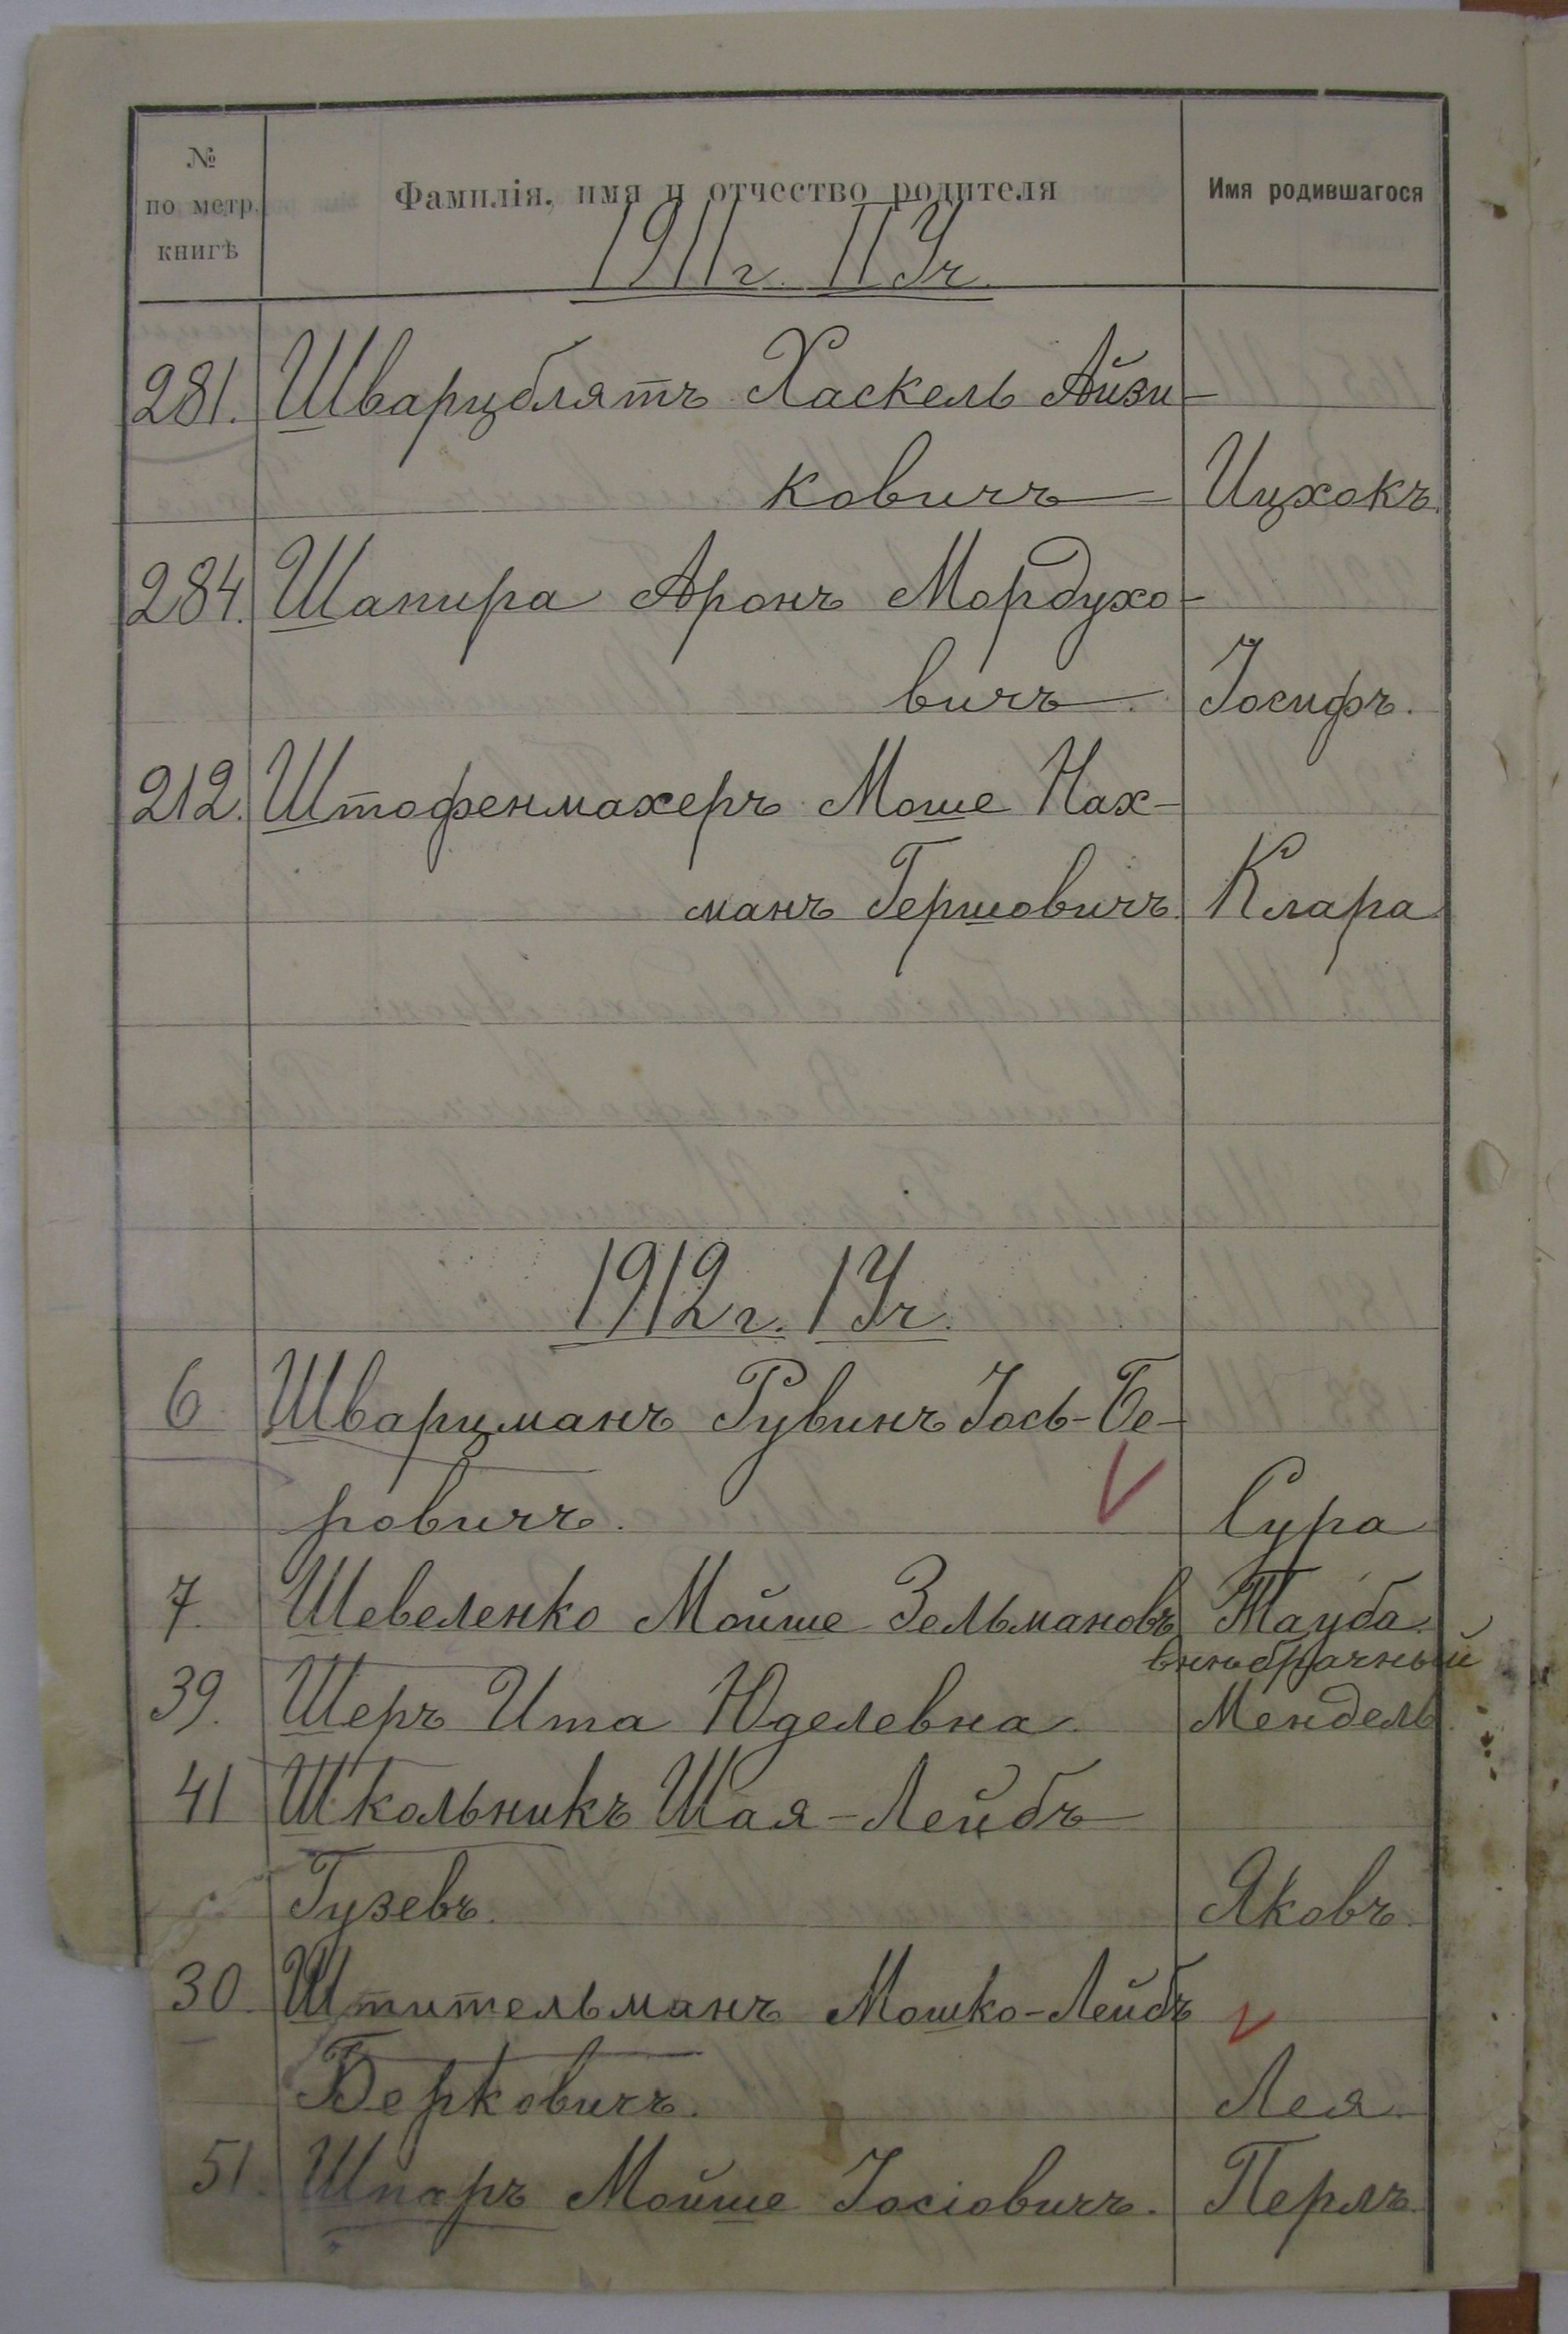 № по метр. книгѣ
Фамилія, имя и отчество родителя
Имя родившагося
1911г. II Уч.
281. Шварцблятъ Хаскель Айзи-
ковичъ Ицхокъ.
284. Шапира Аронъ Мордухо-
вичъ. Іосифъ.
212. Штофенмахеръ Моше Нах-
манъ Гершовичъ. Клара
1912г. I Уч.
6 Шварцманъ Рувинъ Іось-Бе-
ровичъ. Сура
7. Шевеленко Мойше Зельмановъ Тауба.
внѣбрачный
39. Шеръ Ита Юделевна. Мендель.
41 Школьникъ Шая-Лейбъ
Гузевъ. Яковъ.
30. Штительманъ Мошко-Лейбъ
Берковичъ. Лея.
51. Шпаръ Мойше Іосіовичъ. Перлъ.